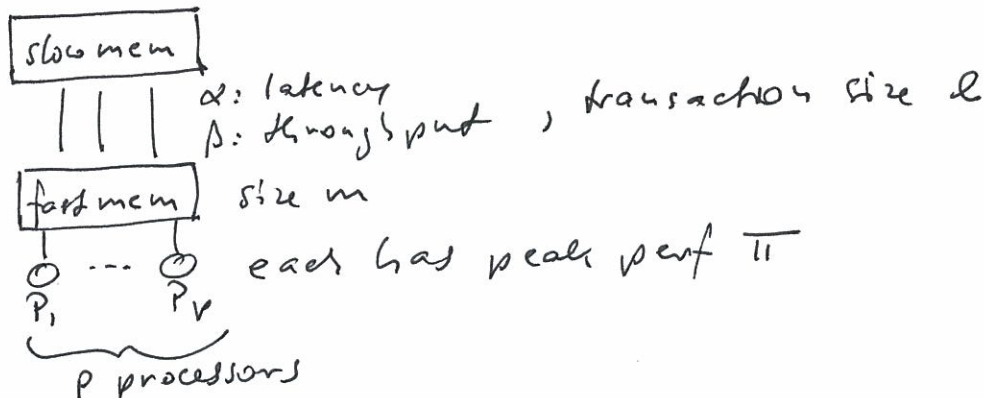 slow mem
α: latency
β: throughput , transaction size l
fast mem size m
... each has peak perf π
P₁ Pₚ
p processors